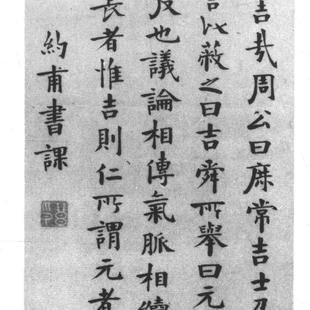 吉哉周公曰庶常吉士
言以蔽之曰吉舜所舉曰元
及也議論相傳氣脈相續
長者惟吉則仁所謂元者
約甫書課